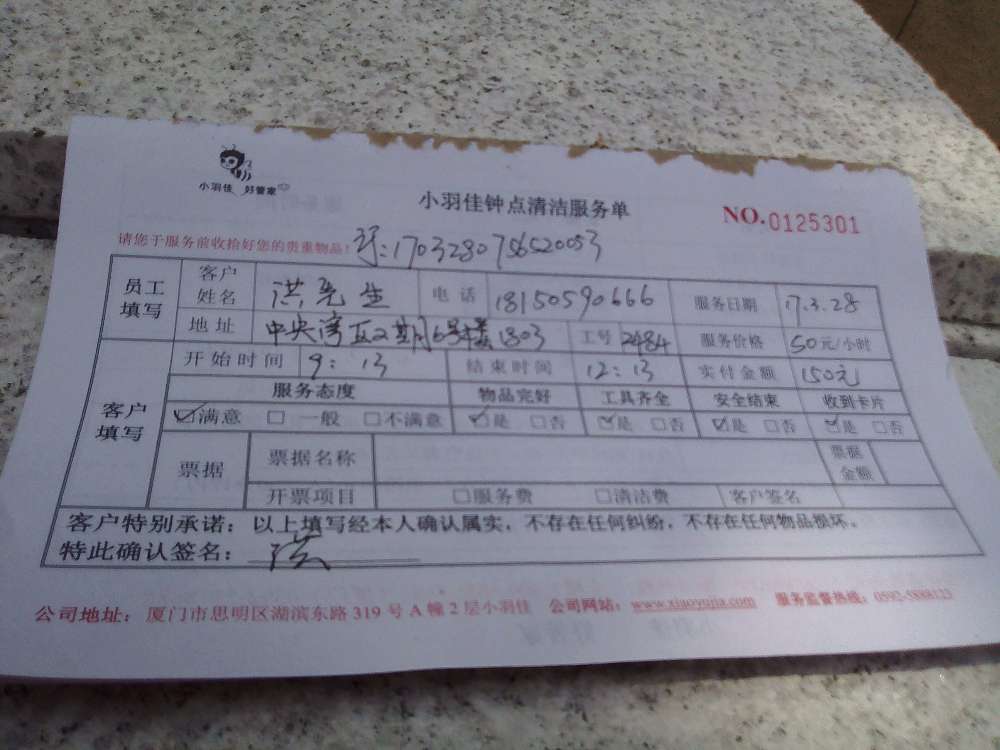 小羽佳 好管家
小羽佳钟点清洁服务单
NO.0125301
请您于服务前收拾好您的贵重物品!
员工填写 客户姓名 洪先生 电话 18150590666 服务日期 17.3.28
地址 中央湾区2期6号楼1803 工号 2484 服务价格 50元/小时
客户填写 开始时间 9:13 结束时间 12:13 实付金额 150元
服务态度 物品完好 工具齐全 安全结束 收到卡片
☑满意 □一般 □不满意 ☑是 □否 ☑是 □否 ☑是 □否 ☑是 □否
票据 票据名称 票据金额
开票项目 □服务费 □清洁费 客户签名
客户特别承诺:以上填写经本人确认属实,不存在任何纠纷,不存在任何物品损坏。
特此确认签名: 洪
公司地址:厦门市思明区湖滨东路319号A幢2层小羽佳 公司网站:www.xiaoyujia.com 服务监督热线:0592-5888123